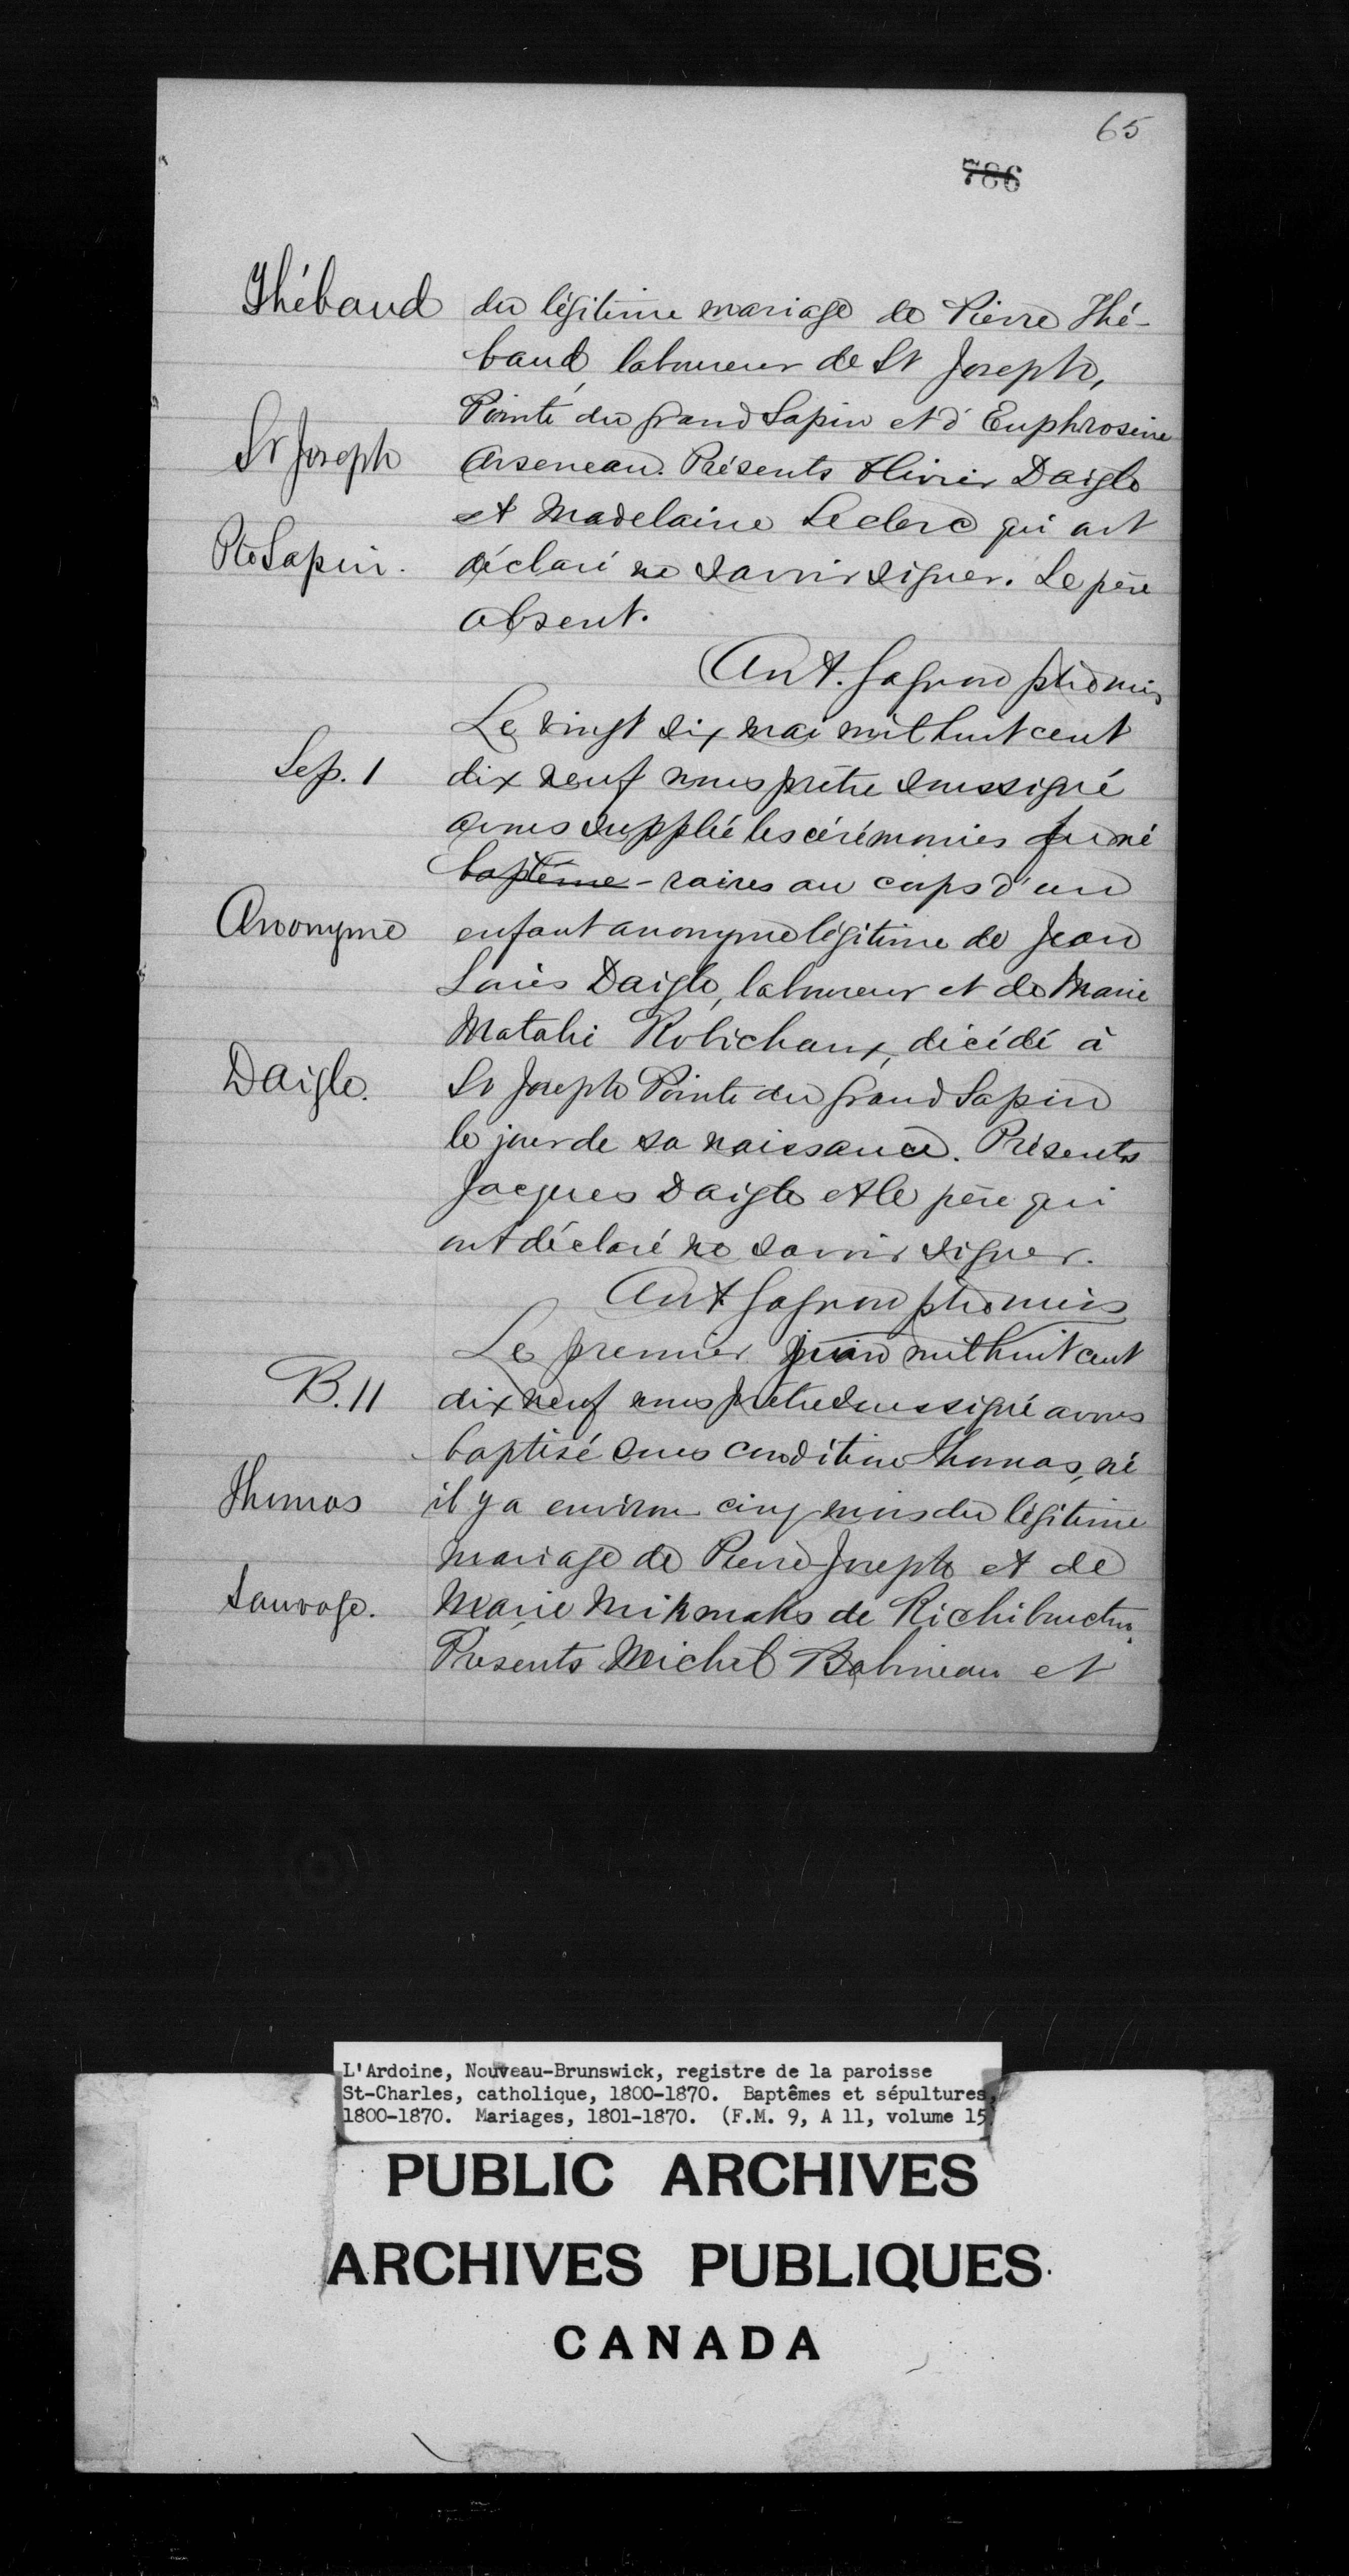 65
786
Thébaud du légitime mariage de Pierre Thé-
baud, laboureur de St Joseph,
Pointe du Grand Sapin et d'Euphrosine
St Joseph Arseneau. Présents Olivier Daigle
et Madelaine Leclerc qui ont
Pte Sapin. déclaré ne savoir signer. Le père
absent.
Ant. Gagnon ptre miss
Le vingt six mai mil huit cent
Sep. 1 dix neuf nous prêtre soussigné
avons supplée les cérémonies funé
baptême - raires au corps d'un
Anonyme enfant anonyme légitime de Jean
Louis Daigle, laboureur et de Marie
Matahi Robichaux, décédé à
Daigle. St Joseph Pointe du Grand Sapin
le jour de sa naissance. Présents
Jacques Daigle et le père qui
ont déclaré ne savoir signer.
Ant Gagnon ptre miss
Le premier juin mil huit cent
B. 11 dix neuf nous prêtre soussigné avons
baptisé sous condition Thomas, né
Thomas il y a environ cinq mois du légitime
mariage de Pierre Joseph et de
Sauvage. Marie Mikmaks de Richibuctou
Présents Michel Babineau et
L'Ardoine, Nouveau-Brunswick, registre de la paroisse
St-Charles, catholique, 1800-1870. Baptêmes et sépultures,
1800-1870. Mariages, 1801-1870. (F.M. 9, A 11, volume 15)
PUBLIC ARCHIVES
ARCHIVES PUBLIQUES
CANADA